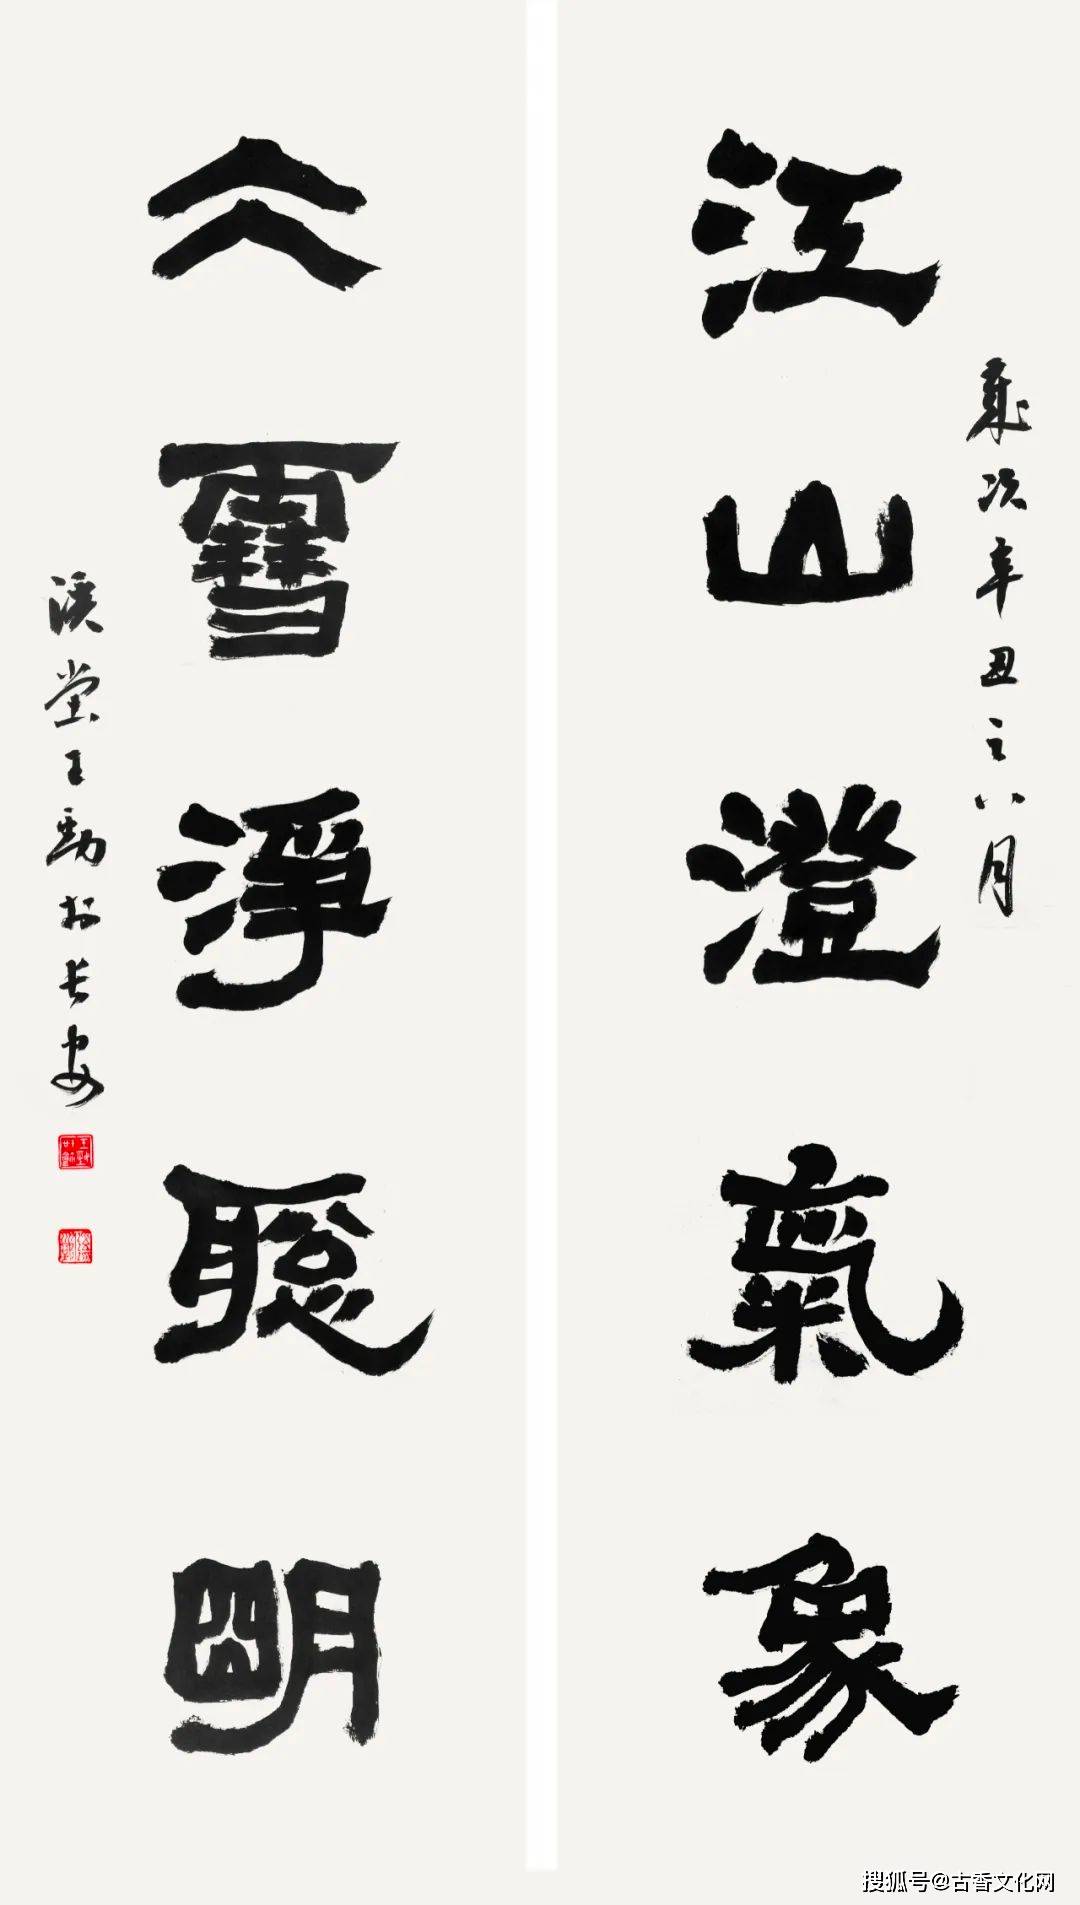 歲次辛丑之八月
江山澄氣象
仌雪淨聰明
溪堂王勁於長安
搜狐号@古香文化网